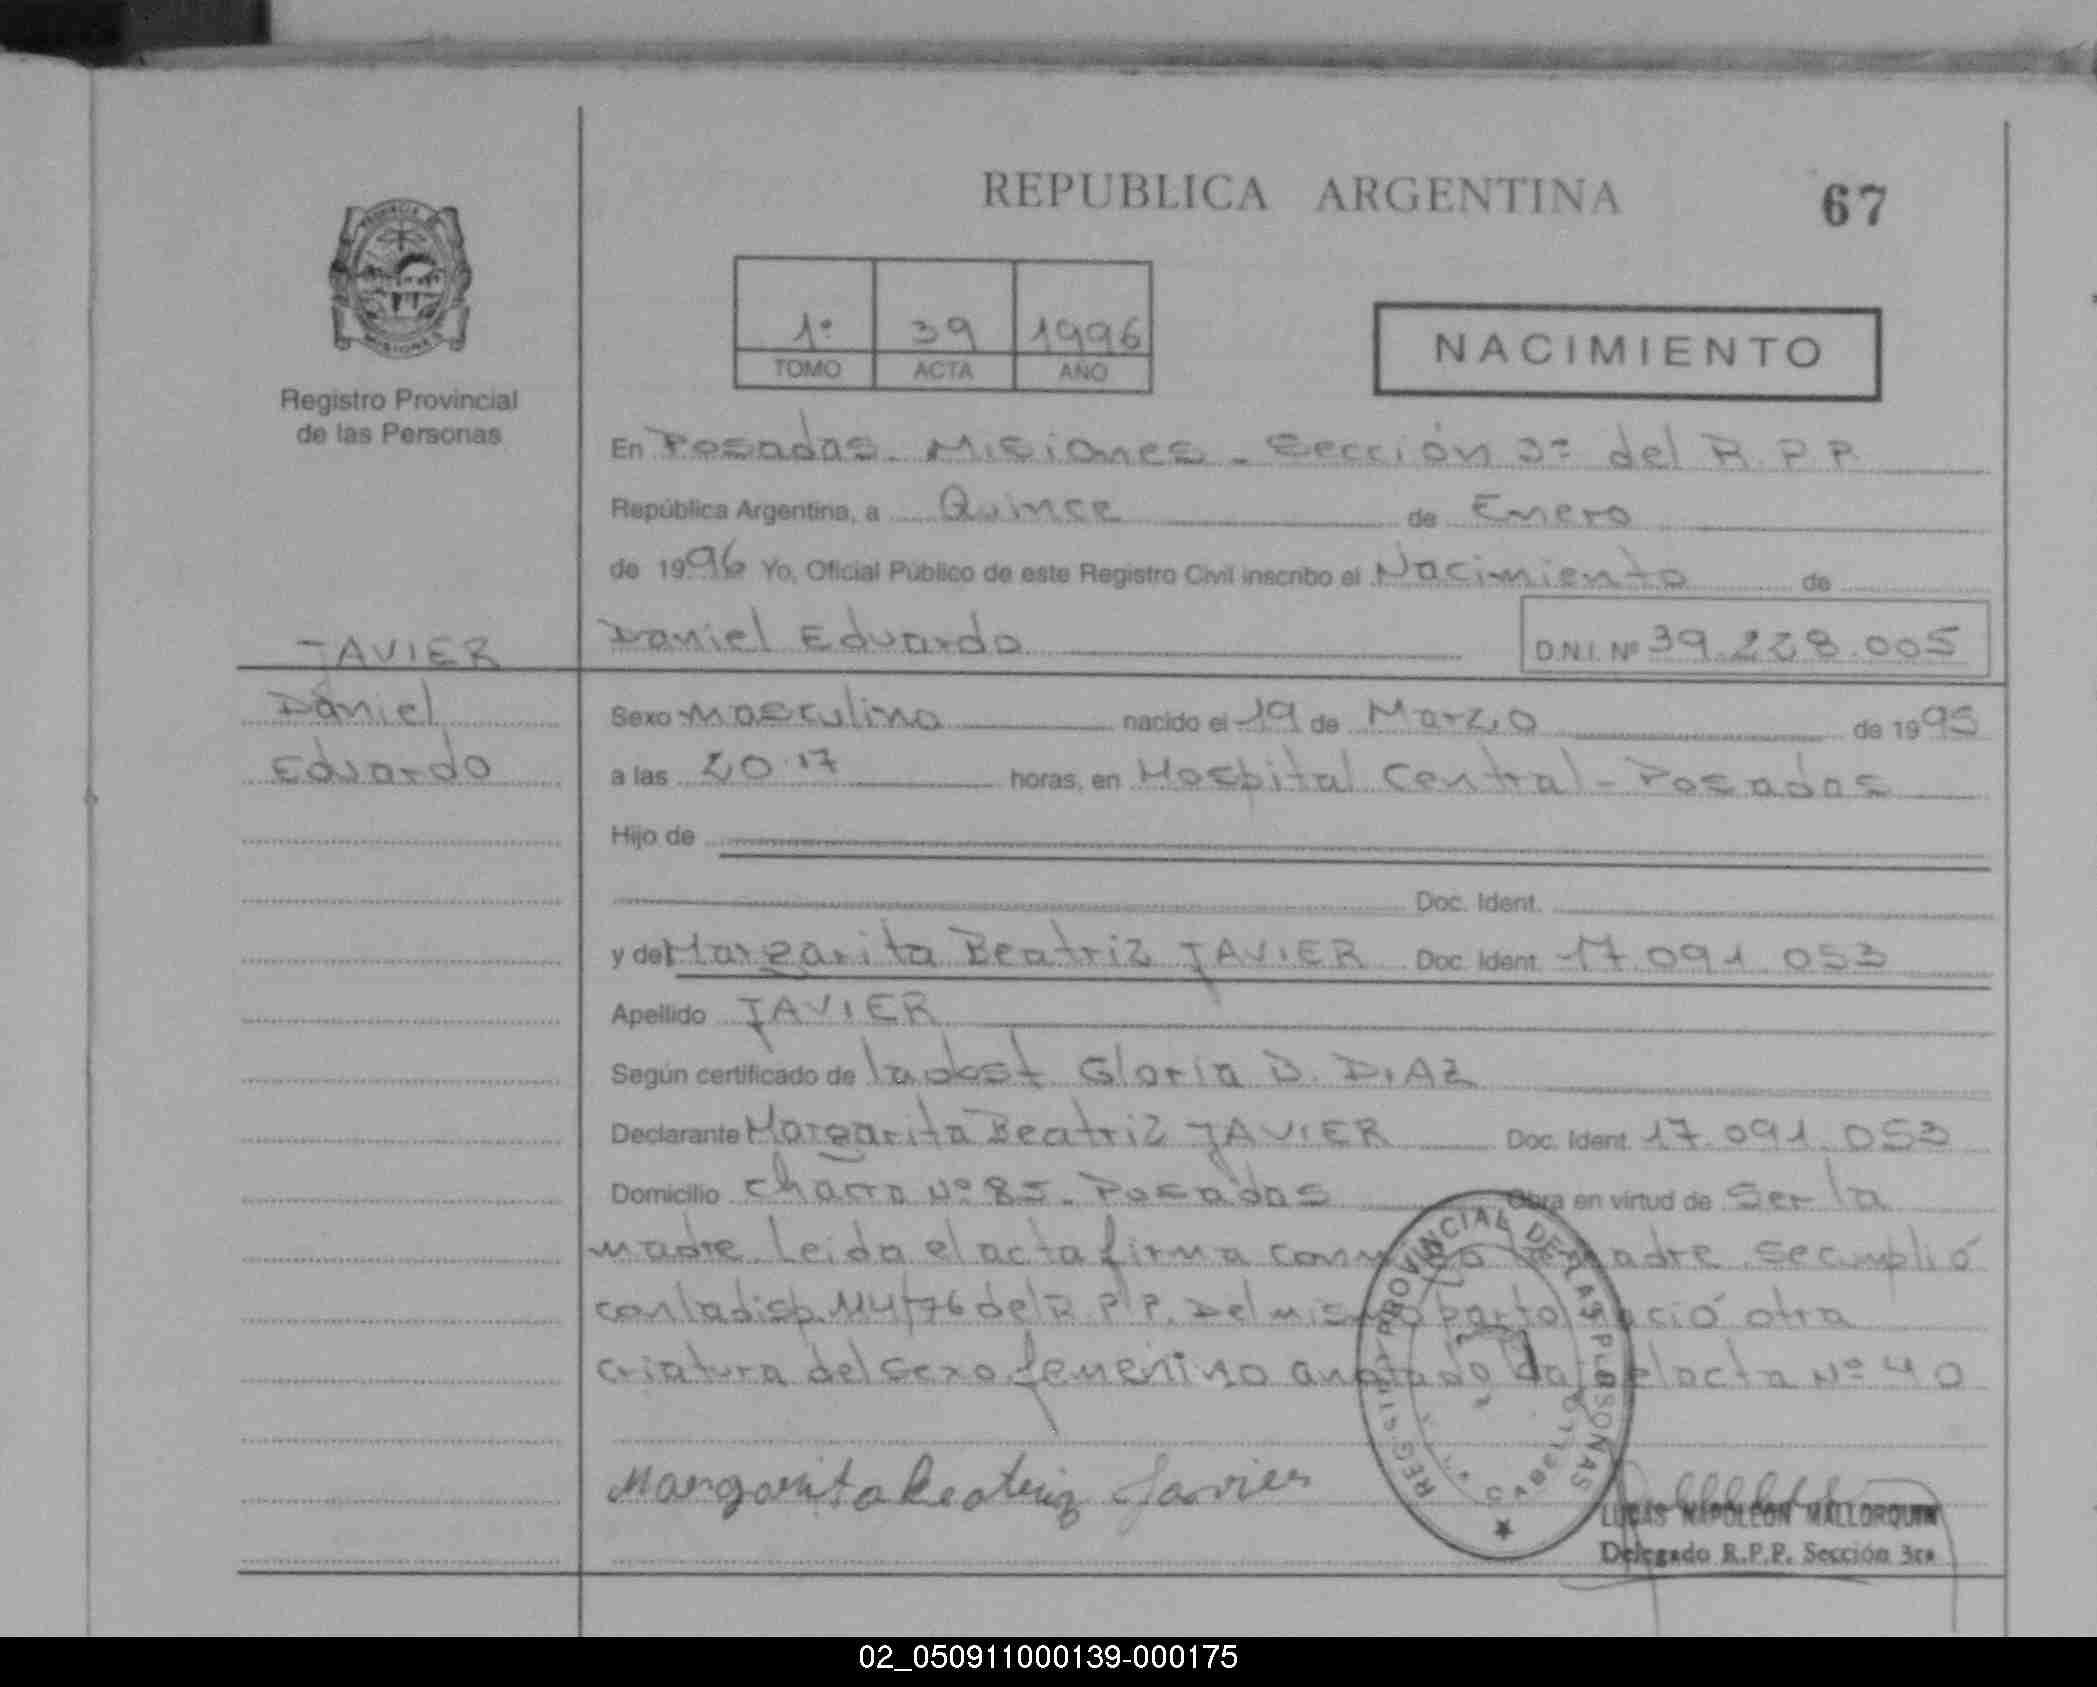 REPUBLICA ARGENTINA
67
PROVINCIA DE
MISIONES
Registro Provincial
de las Personas
1º 39 1996
TOMO ACTA AÑO
NACIMIENTO
En Posadas - Misiones - Sección 3ª del R.P.P.
República Argentina, a Quince de Enero
de 1996 Yo, Oficial Público de este Registro Civil inscribo el Nacimiento de
Daniel Eduardo D.N.I. Nº 39.228.005
JAVIER
Daniel
Eduardo
Sexo masculino nacido el 19 de Marzo de 1995
a las 20.17 horas, en Hospital Central - Posadas
Hijo de
Doc. Ident.
y de Margarita Beatriz JAVIER Doc. Ident. 17.091.053
Apellido JAVIER
Según certificado de la obst Gloria D. DIAZ
Declarante Margarita Beatriz JAVIER Doc. Ident. 17.091.053
Domicilio Chacra Nº 85 - Posadas Obra en virtud de Ser la
madre. Leida el acta firma conmigo la madre. Se cumplió
con la disp. 114/76 del R.P.P. Del mismo parto nació otra
criatura del sexo femenino anotado en el acta Nº 40
Margarita Beatriz Javier
REGISTRO PROVINCIAL DE LAS PERSONAS
LUCAS NAPOLEON MALLORQUIN
Delegado R.P.P. Sección 3ra
02_050911000139-000175